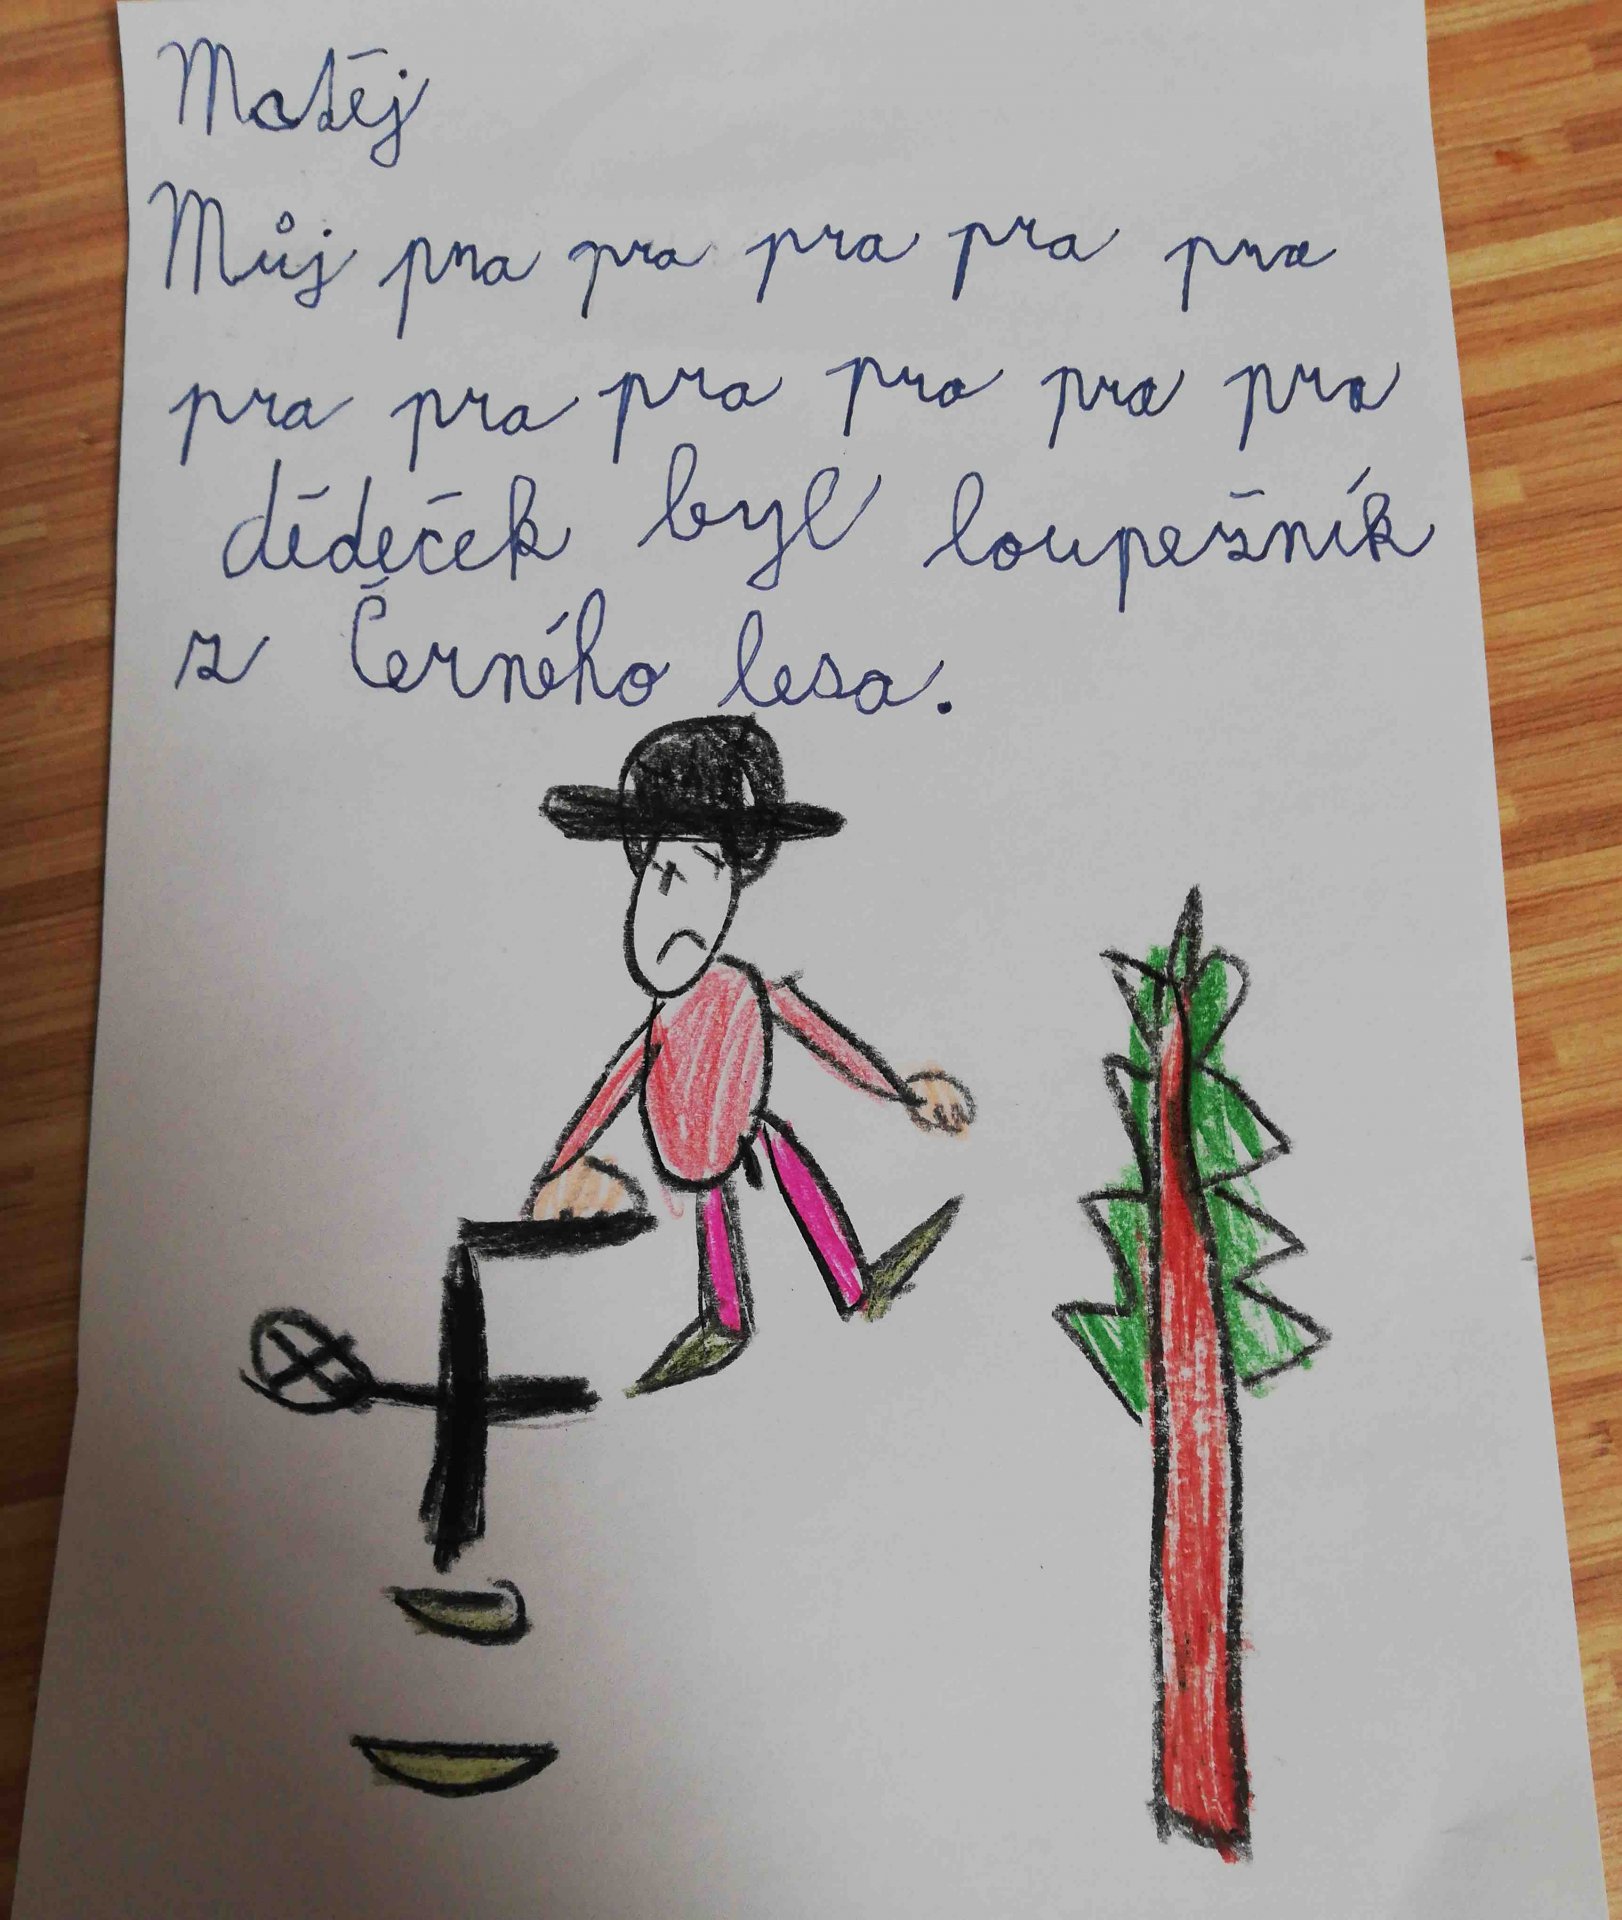 Matěj
Můj pra pra pra pra pra
pra pra pra pra pra pra
dědeček byl loupežník
z Černého lesa.